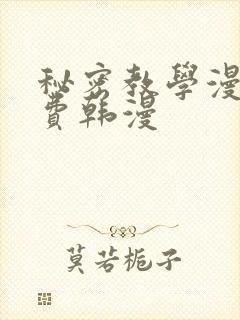 秘密教學漫
費韩漫
莫若栀子